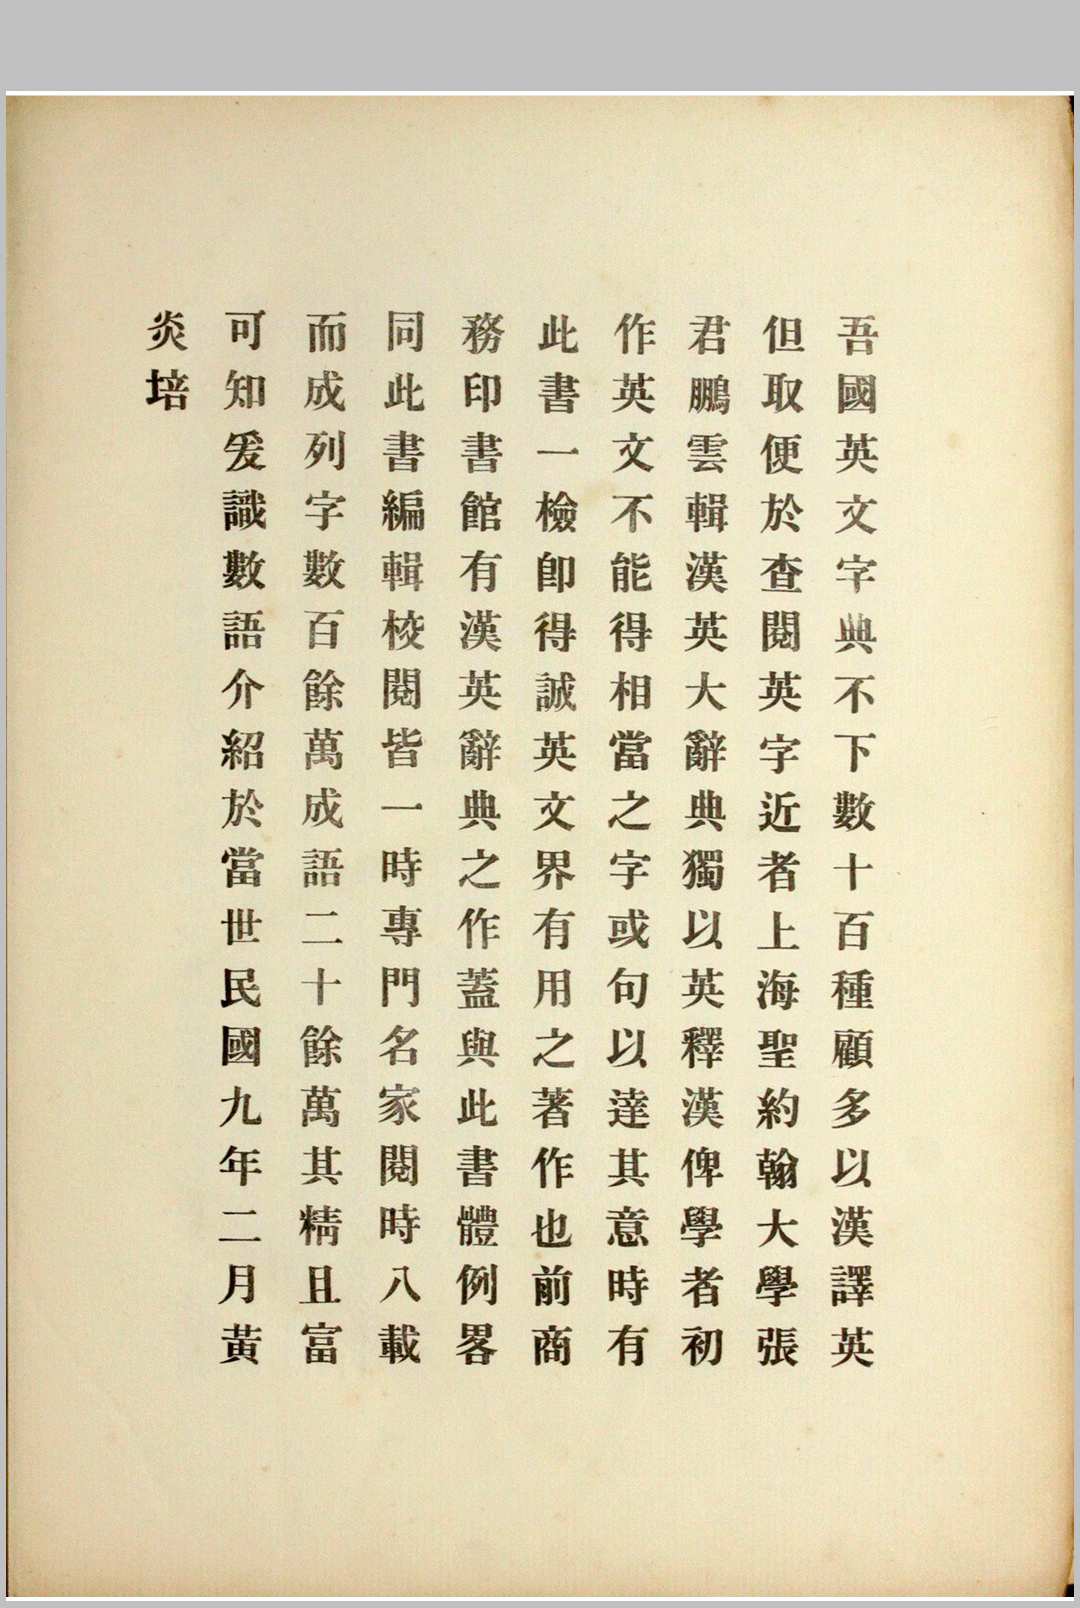 吾國英文字典不下數十百種顧多以漢譯英
但取便於查閱英字近者上海聖約翰大學張
君鵬雲輯漢英大辭典獨以英釋漢俾學者初
作英文不能得相當之字或句以達其意時有
此書一檢卽得誠英文界有用之著作也前商
務印書館有漢英辭典之作蓋與此書體例畧
同此書編輯校閱皆一時專門名家閱時八載
而成列字數百餘萬成語二十餘萬其精且富
可知爰識數語介紹於當世民國九年二月黃
炎培